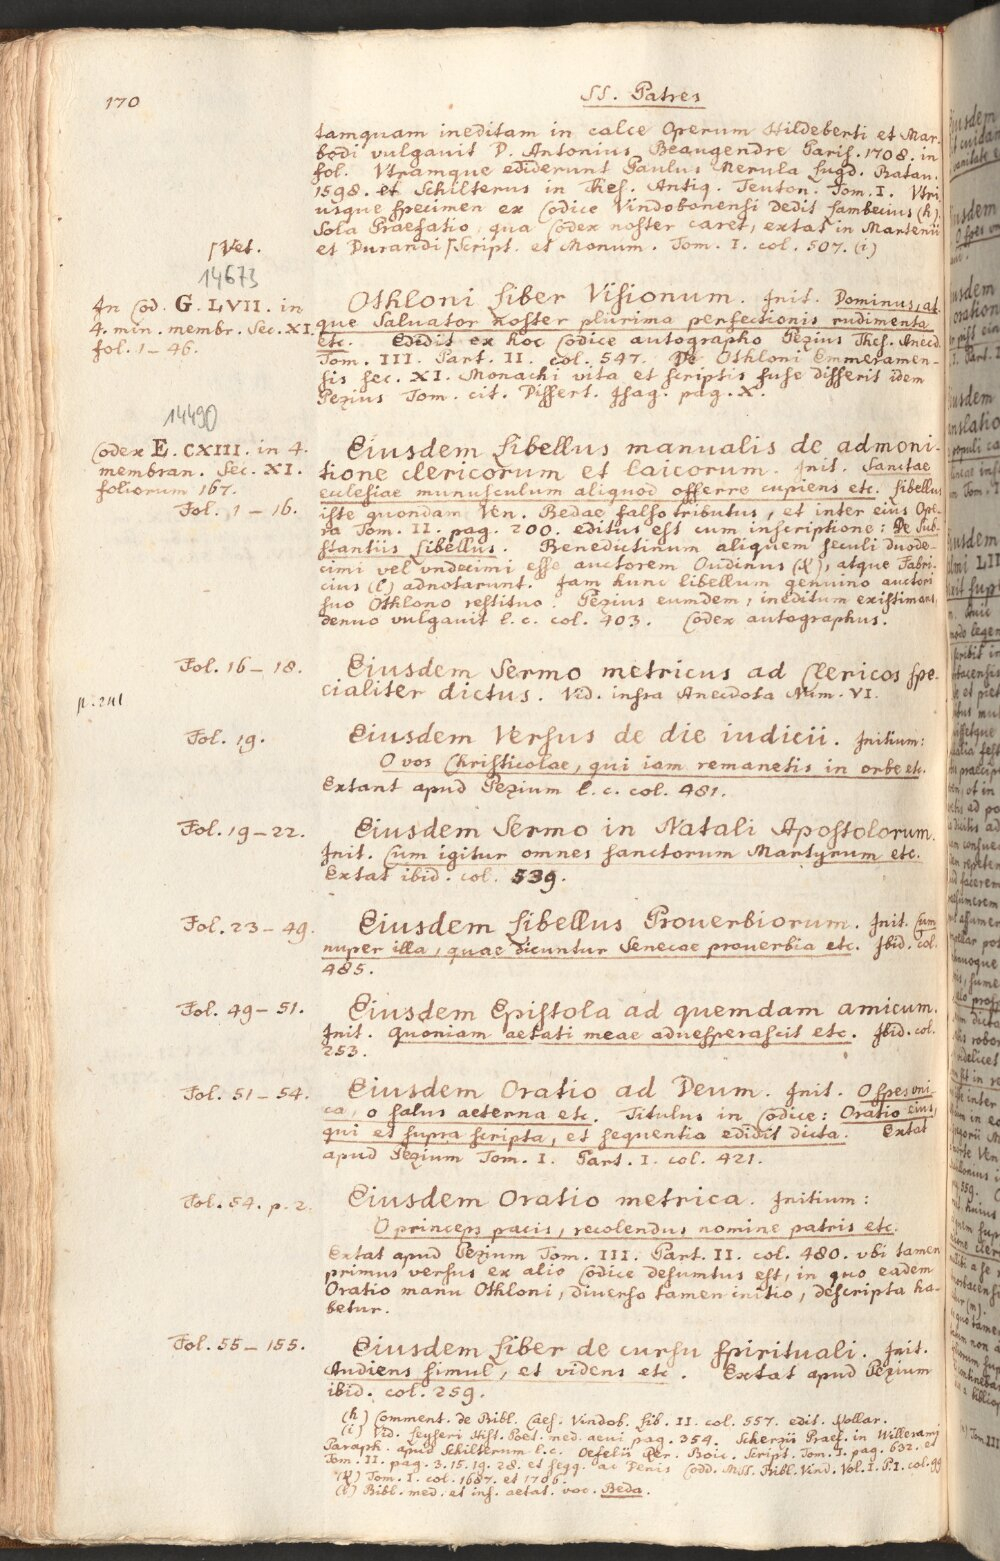 170
SS. Patres
tamquam ineditam in calce Operum Hildeberti et Mar-
bodi vulgauit D. Antonius Beaugendre Paris. 1708. in
fol. Vtramque ediderunt Paulus Merula Lugd. Batau.
1598. et Schilterus in Thes. Antiq. Teuton. Tom. I. Vtri
usque specimen ex Codice Vindobonensi dedit Lambecius (h).
Sola Praefatio, qua Codex noster caret, extat in Martenii
et Durandi ⌈Script. et Monum. Tom. I. col. 507. (i)
⌈Vet.
14673
In Cod. G. LVII. in
4. min. membr. Sec. XI.
fol. 1–46.
Othloni Liber Visionum. Init. Dominus, at-
que Saluator noster plurima perfectionis rudimenta
etc. Edidit ex hoc Codice autographo Pezius Thes. Anecd.
Tom. III. Part. II. col. 547. De Othloni Emmeramen-
sis sec. XI. Monachi vita et scriptis fuse disserit idem
Pezius Tom. cit. Dissert. Isag. pag. X.
14490
Codex E. CXIII. in 4.
membran. Sec. XI.
foliorum 167.
Fol. 1–16.
Eiusdem Libellus manualis de admoni-
tione clericorum et laicorum. Init. Sanctae
ecclesiae munusculum aliquod offerre cupiens etc. Libellus
iste quondam Ven. Bedae falso tributus, et inter eius Ope-
ra Tom. II. pag. 200. editus est cum inscriptione: De Sub-
stantiis Libellus. Benedictinum aliquem seculi duode-
cimi vel vndecimi esse auctorem Oudinus (k), atque Fabri-
cius (l) adnotarunt. Iam hunc libellum genuino auctori
suo Othlono restituo. Pezius eumdem, ineditum existimans,
denuo vulgauit l. c. col. 403. Codex autographus.
Fol. 16–18.
Eiusdem Sermo metricus ad Clericos spe-
cialiter dictus. Vid. infra Anecdota Num. VI.
p. 241
Fol. 19.
Eiusdem Versus de die iudicii. Initium:
O vos Christicolae, qui iam remanetis in orbe etc.
Extant apud Pezium l. c. col. 481.
Fol. 19–22.
Eiusdem Sermo in Natali Apostolorum.
Init. Cum igitur omnes sanctorum Martyrum etc.
Extat ibid. col. 539.
Fol. 23–49.
Eiusdem Libellus Prouerbiorum. Init. Cum
nuper illa, quae dicuntur Senecae prouerbia etc. Ibid. col.
485.
Fol. 49–51.
Eiusdem Epistola ad quemdam amicum.
Init. Quoniam aetati meae aduesperascit etc. Ibid. col.
253.
Fol. 51–54.
Eiusdem Oratio ad Deum. Init. O spes vni-
ca, o salus aeterna etc. Titulus in Codice: Oratio eius,
qui et supra scripta, et sequentia edidit dicta. Extat
apud Pezium Tom. I. Part. I. col. 421.
Fol. 54. p. 2.
Eiusdem Oratio metrica. Initium:
O princeps pacis, recolendus nomine patris etc.
Extat apud Pezium Tom. III. Part. II. col. 480. vbi tamen
primus versus ex alio Codice desumtus est, in quo eadem
Oratio manu Othloni, diuerso tamen initio, descripta ha-
betur.
Fol. 55–155.
Eiusdem Liber de cursu spirituali. Init.
Audiens simul, et videns etc. Extat apud Pezium
ibid. col. 259.
(h) Comment. de Bibl. Caes. Vindob. Lib. II. col. 557. edit. Kollar.
(i) Vid. Leyseri Hist. Poet. med. aeui pag. 354. Scherzii Praef. in Willerami
Paraph. apud Schilterum l. c. Oefelii Rer. Boic. Script. Tom. I. pag. 632. et
Tom. II. pag. 3. 15. 19. 28. et seqq. ac Denis Codd. MSS. Bibl. Vind. Vol. I. P. I. col. 99
(k) Tom. I. col. 1687. et 1706.
(l) Bibl. med. et inf. aetat. voc. Beda.